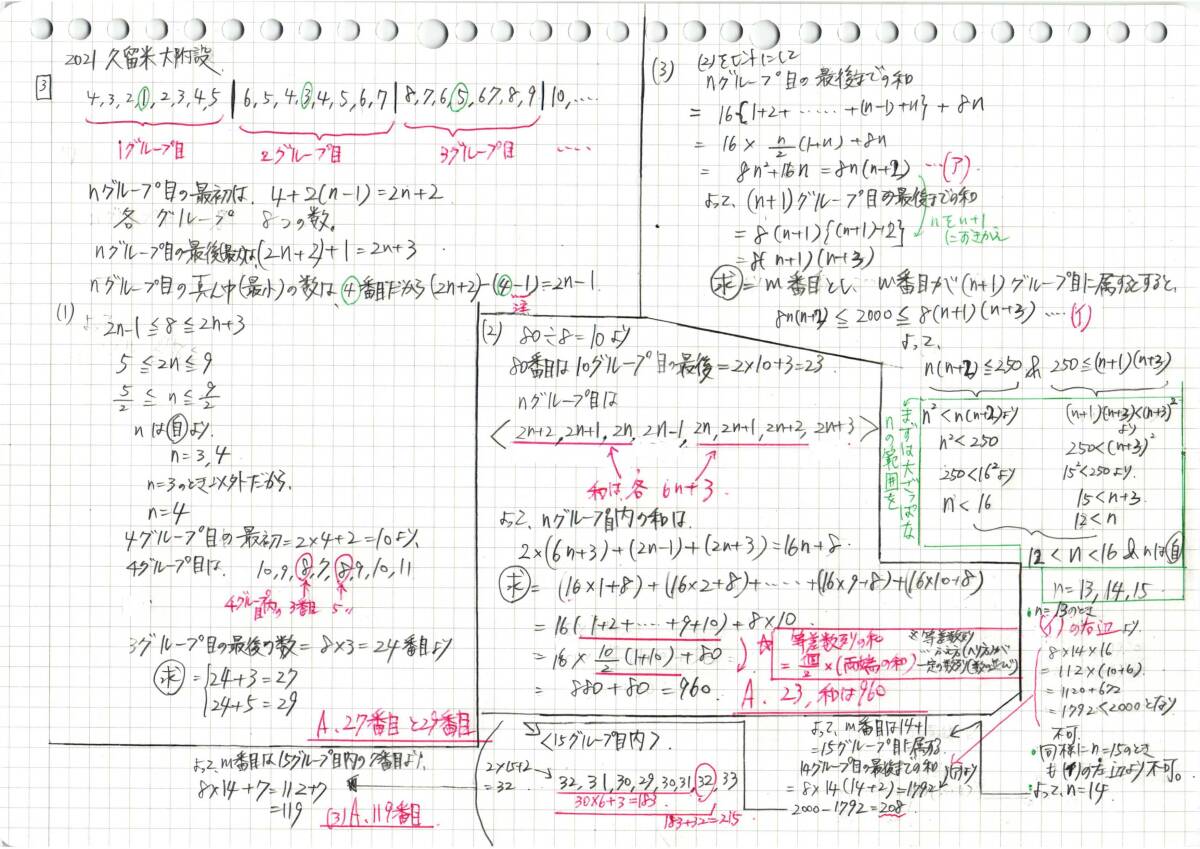 2021 久留米大附設
3
4,3,2,1,2,3,4,5 | 6,5,4,3,4,5,6,7 | 8,7,6,5,6,7,8,9 | 10,‥‥
1グループ目 2グループ目 3グループ目 ‥‥
nグループ目の最初は、4+2(n-1)=2n+2
各グループ 8つの数。
nグループ目の最後は、(2n+2)+1=2n+3
nグループ目の真ん中(最小)の数は④番目だから(2n+2)-(④-1)=2n-1.
注
(1)
よって
2n-1≦8≦2n+3
5≦2n≦9
5/2≦n≦9/2
nは自より
n=3,4
n=3のとき以外だから、
n=4
4グループ目の最初=2×4+2=10より、
4グループ目は、10,9,8,7,8,9,10,11
4グループ目内の3番目 5〃
3グループ目の最後の数=8×3=24番目より
求={24+3=27
24+5=29
A. 27番目と29番目
(2) 80÷8=10より
80番目は10グループ目の最後=2×10+3=23.
nグループ目は
<2n+2,2n+1,2n,2n-1,2n,2n+1,2n+2,2n+3>
和は各 6n+3.
よって、nグループ目内の和は、
2×(6n+3)+(2n-1)+(2n+3)=16n+8.
求=(16×1+8)+(16×2+8)+‥‥+(16×9+8)+(16×10+8)
=16(1+2+‥‥+9+10)+8×10
=16×10/2(1+10)+80
=880+80=960.
☆ 等差数列の和
=個/2×(両端の和)
※等差数列
…ふえ方(へり方)が
一定の数列(数の並び)
A. 23,和は960
(3) (2)をヒントにして
nグループ目の最後までの和
=16{1+2+‥‥‥+(n-1)+n}+8n
=16×n/2(1+n)+8n
=8n²+16n=8n(n+2) …(ア)
よって、(n+1)グループ目の最後までの和
nをn+1
におきかえ
=8(n+1){(n+1)+2}
=8(n+1)(n+3)
求=m番目とし、m番目が(n+1)グループ目に属するとすると、
8n(n+2)≦2000≦8(n+1)(n+3)‥‥(イ)
よって、
n(n+2)≦250 & 250≦(n+1)(n+3)
まずは大ざっぱな
nの範囲を
n²<n(n+2)より
n²<250
250<16²より
n<16
(n+1)(n+3)<(n+3)²
より
250<(n+3)²
15²<250より
15<n+3.
12<n
12<n<16&nは自
n=13,14,15.
・n=13のとき
(イ)の右辺より
8×14×16
=112×(10+6)
=1120+672
=1792<2000となり
不可.
・同様にn=15のとき
も(イ)の左辺より不可。
・よって、n=14
よって、m番目は14+1
=15グループ目に属する.
14グループの最後までの和
=8×14(14+2)=1792 (ア)より
2000-1792=208
<15グループ目内>
2×15+2
=32
32,31,30,29,30,31,32,33
30×6+3=183
183+32=215
よって、m番目は15グループ目内の7番目より、
8×14+7=112+7
=119
(3)A. 119番目